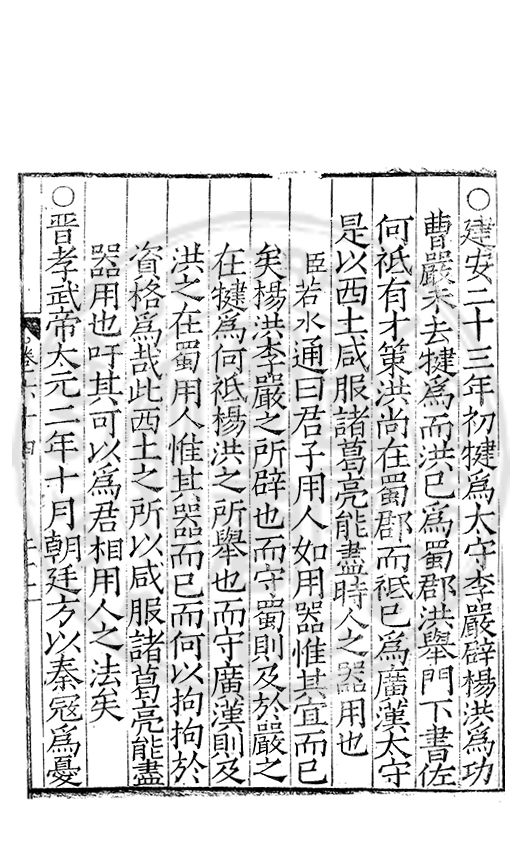 ○建安二十三年初犍爲太守李嚴辟楊洪爲功
曹嚴未去犍爲而洪已爲蜀郡洪舉門下書佐
何祗有才策洪尚在蜀郡而祗已爲廣漢太守
是以西土咸服諸葛亮能盡時人之器用也
臣若水通曰君子用人如用器惟其宜而已
矣楊洪李嚴之所辟也而守蜀則及於嚴之
在犍爲何祗楊洪之所舉也而守廣漢則及
洪之在蜀用人惟其器而已而何以拘拘於
資格爲哉此西土之所以咸服諸葛亮能盡
器用也吁其可以爲君相用人之法矣
○晋孝武帝太元二年十月朝廷方以秦寇爲憂
卷六十四